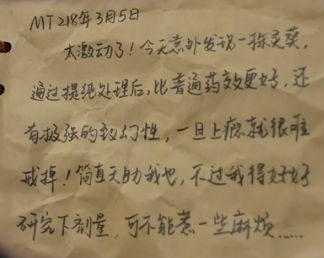 MT 218年3月5日
太激动了！今天意外发现一株灵葵，
通过提纯处理后，比普通药效更好，还
有极强的致幻性，一旦上瘾就很难
戒掉！简直天助我也，不过我得好好
研究下剂量，可不能惹一些麻烦……